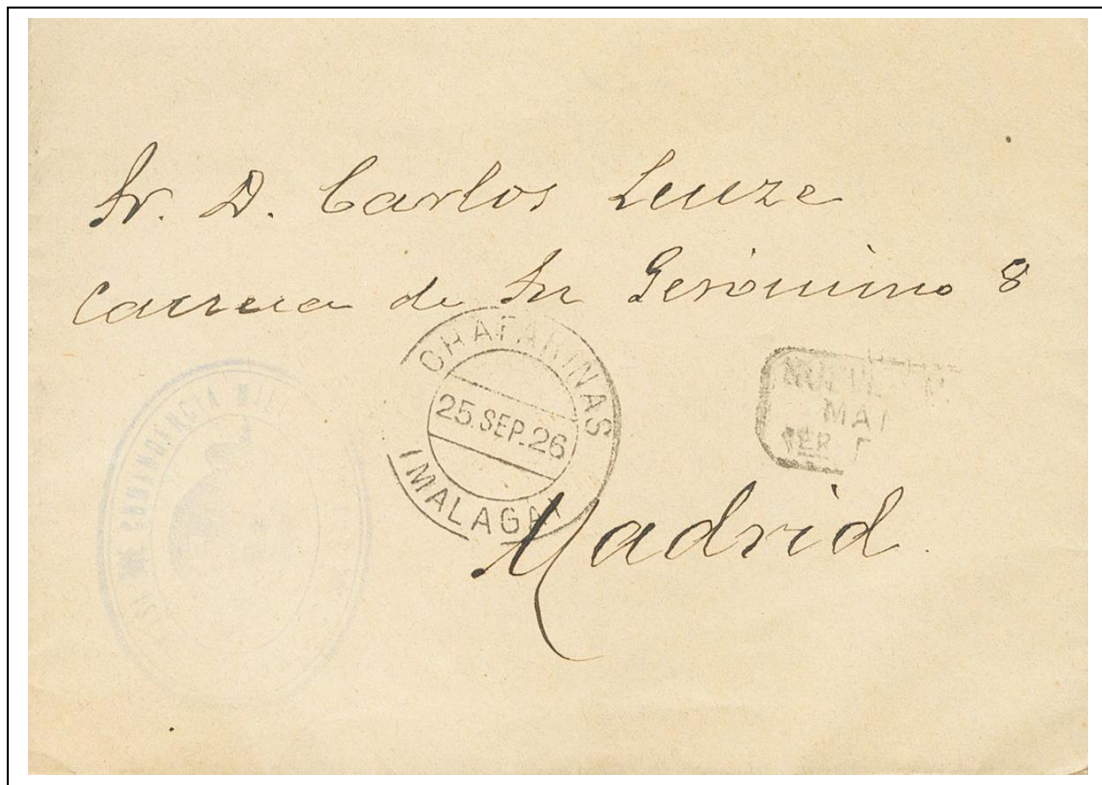 Sr. D. Carlos Leuze
Carrera de Sn Gerónimo 8
CHAFARINAS
25.SEP.26
(MALAGA)
Madrid.
COMANDANCIA